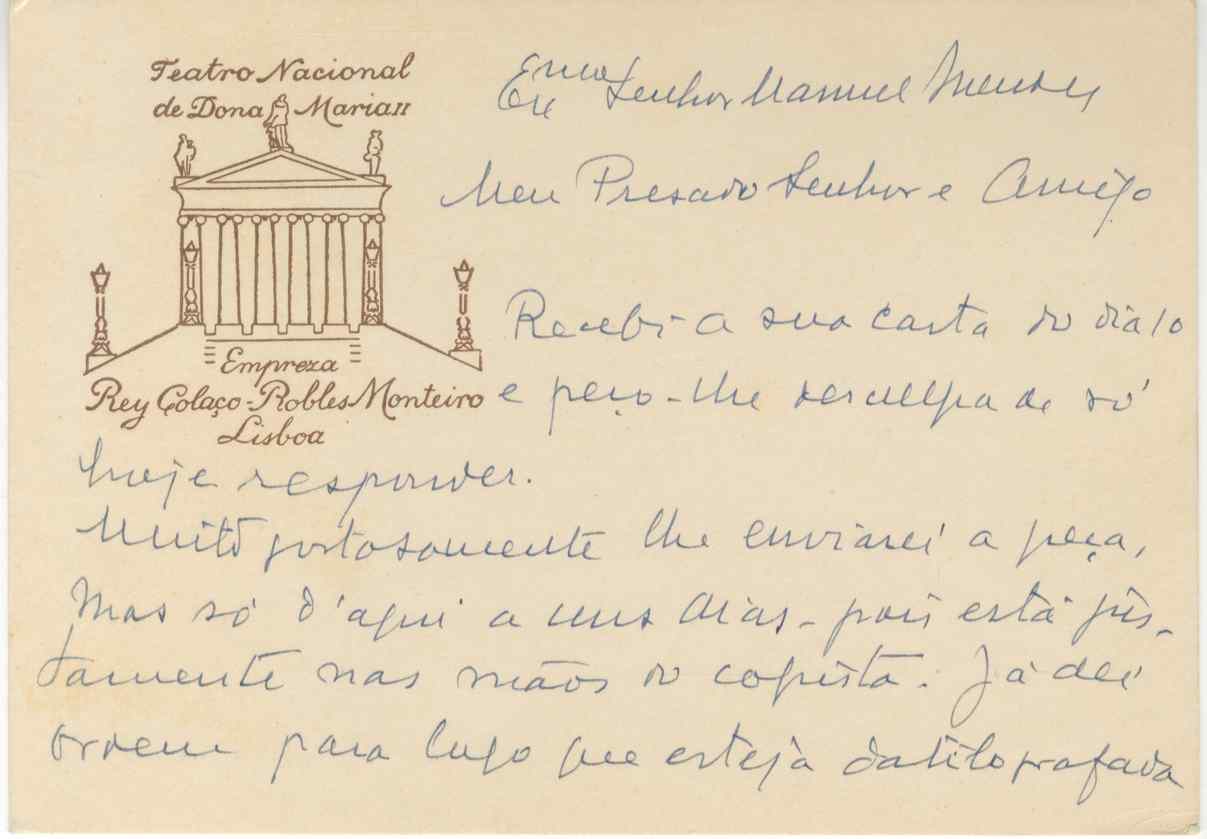 Teatro Nacional
de Dona Maria II
Empreza
Rey Colaço-Robles Monteiro
Lisboa
Exmo Senhor Manuel Mendes
Meu Presado Senhor e Amigo
Recebi a sua carta do dia 10
e peço-lhe desculpa de só
hoje responder.
Muito gostosamente lhe enviarei a peça,
mas só d'aqui a uns dias - pois está jus-
tamente nas mãos do copista. Já dei
ordem para logo que esteja datilografada